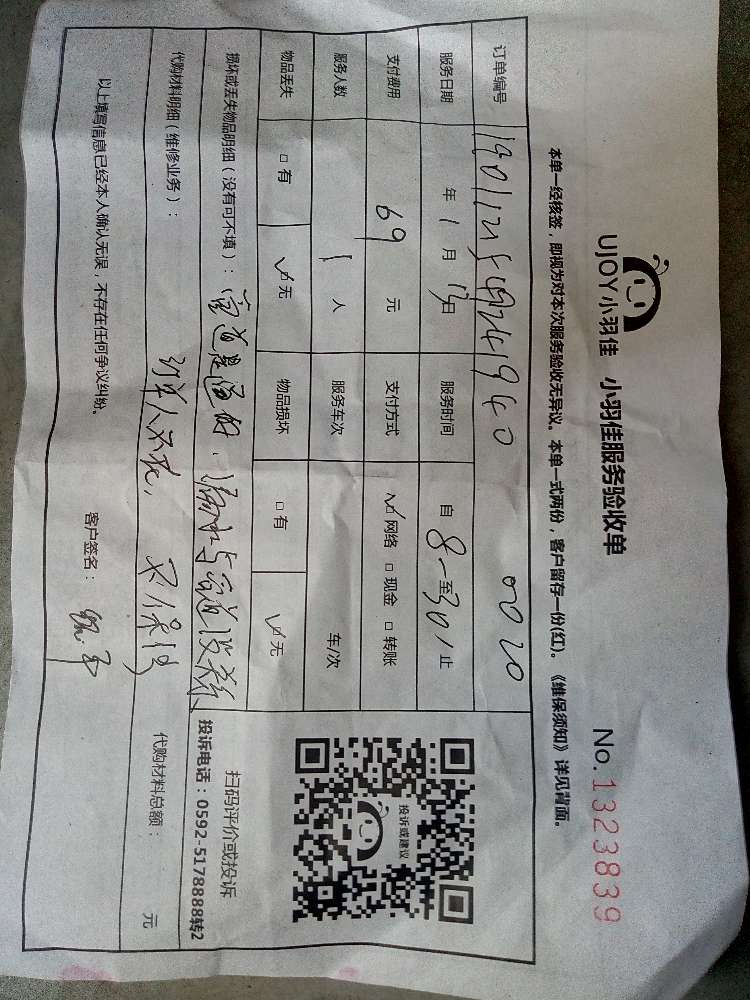 UJOY小羽佳 小羽佳服务验收单
No.1323839
本单一经核签，即视为对本次服务验收无异议。本单一式两份，客户留存一份(红)。《维保须知》详见背面。
订单编号 0020
服务日期 年 1 月 13日 服务时间 自 8 至 30 止
支付费用 69 元 支付方式 ☑网络 □现金 □转账
服务人数 1 人 服务车次 车/次
物品丢失 □有 ☑无 物品损坏 □有 ☑无
损坏或丢失物品明细（没有可不填）：管道是通的，漏水与管道没关系
代购材料明细（维修业务）： 订单人不在，不保修 代购材料总额： 元
以上填写信息已经本人确认无误，不存在任何争议纠纷。 客户签名：
投诉或建议
扫码评价或投诉
投诉电话：0592-5178888转2